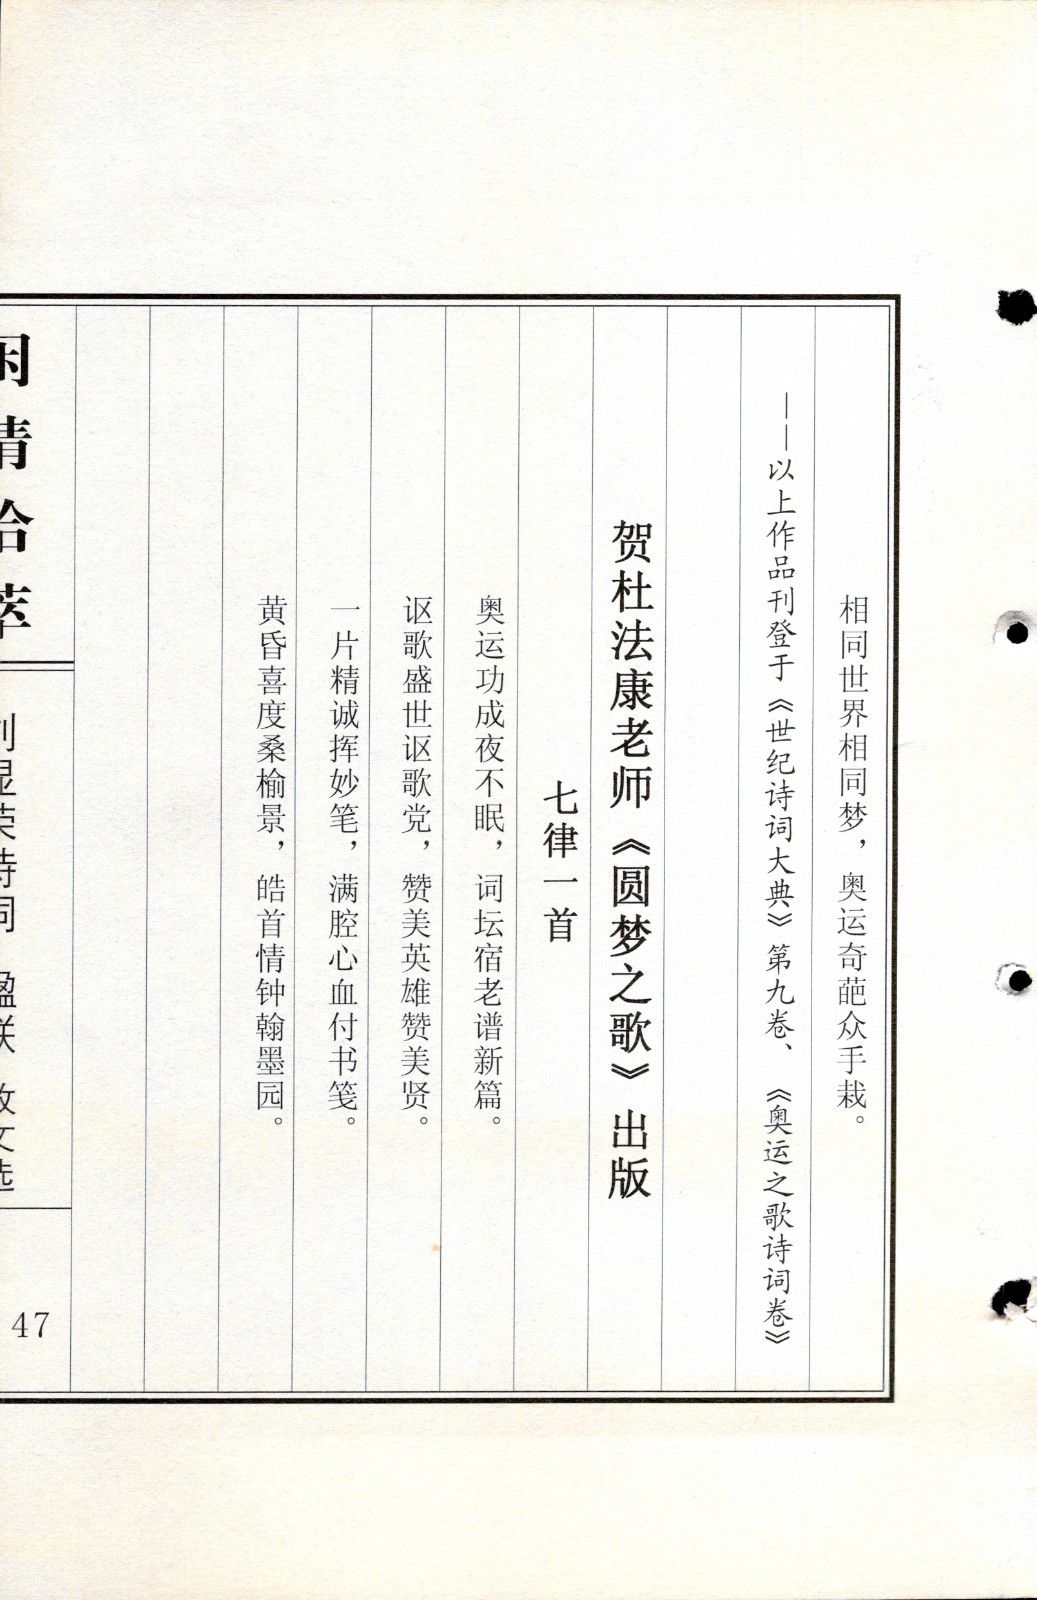 相同世界相同梦，奥运奇葩众手栽。
——以上作品刊登于《世纪诗词大典》第九卷、《奥运之歌诗词卷》
贺杜法康老师《圆梦之歌》出版
七律一首
奥运功成夜不眠，词坛宿老谱新篇。
讴歌盛世讴歌党，赞美英雄赞美贤。
一片精诚挥妙笔，满腔心血付书笺。
黄昏喜度桑榆景，皓首情钟翰墨园。
拾萃
刘显荣诗词 楹联 散文选
47